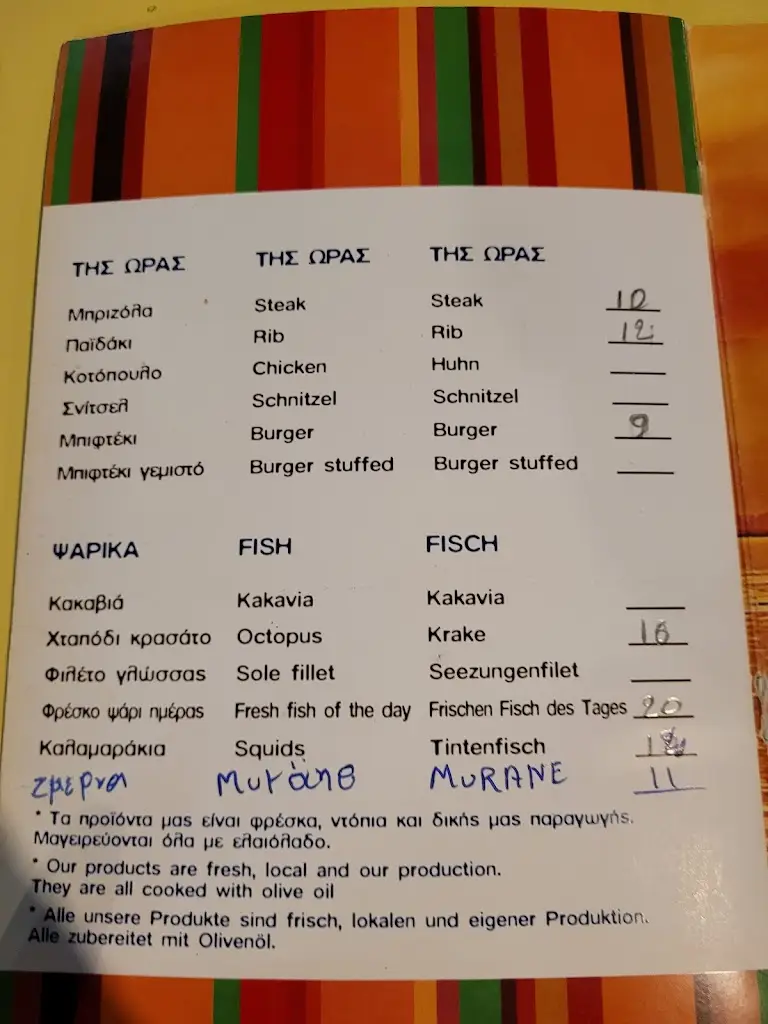 ΤΗΣ ΩΡΑΣ ΤΗΣ ΩΡΑΣ ΤΗΣ ΩΡΑΣ
Μπριζόλα Steak Steak 10
Παϊδάκι Rib Rib 12
Κοτόπουλο Chicken Huhn
Σνίτσελ Schnitzel Schnitzel
Μπιφτέκι Burger Burger 9
Μπιφτέκι γεμιστό Burger stuffed Burger stuffed
ΨΑΡΙΚΑ FISH FISCH
Κακαβιά Kakavia Kakavia
Χταπόδι κρασάτο Octopus Krake 16
Φιλέτο γλώσσας Sole fillet Seezungenfilet
Φρέσκο ψάρι ημέρας Fresh fish of the day Frischen Fisch des Tages 20
Καλαμαράκια Squids Tintenfisch
MURANE 11
* Τα προϊόντα μας είναι φρέσκα, ντόπια και δικής μας παραγωγής.
Μαγειρεύονται όλα με ελαιόλαδο.
* Our products are fresh, local and our production.
They are all cooked with olive oil
* Alle unsere Produkte sind frisch, lokalen und eigener Produktion.
Alle zubereitet mit Olivenöl.